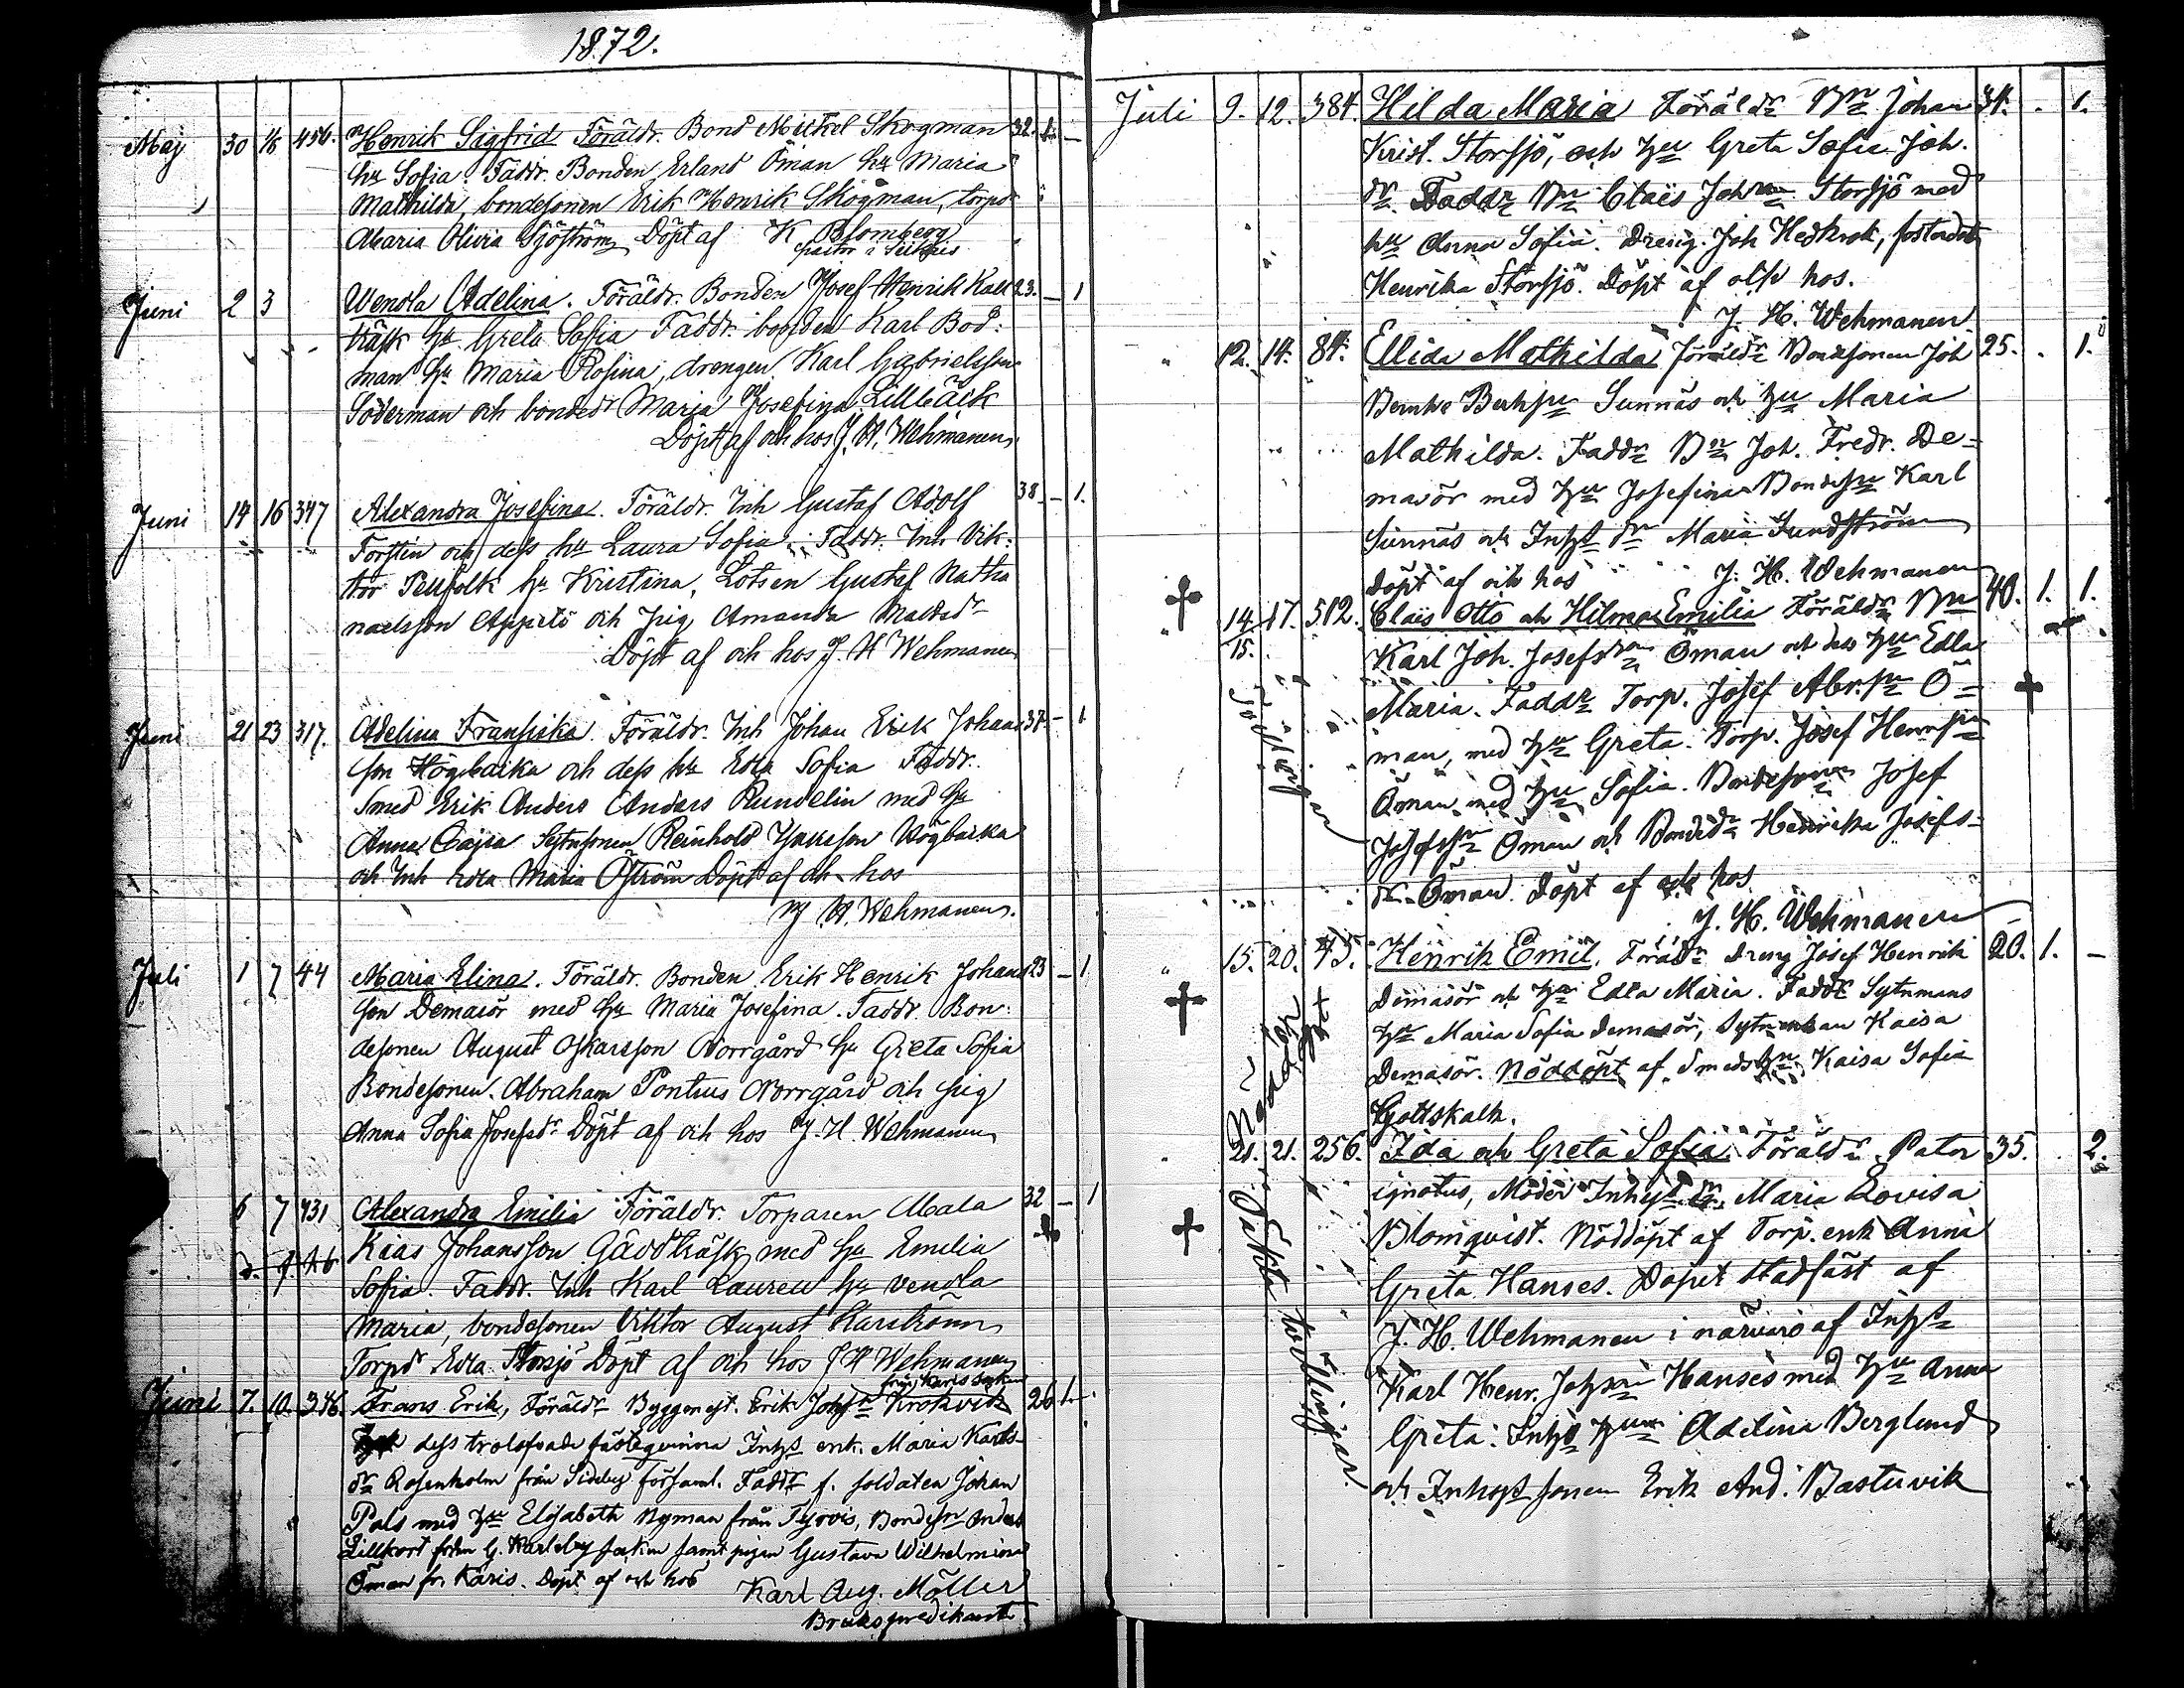 1872.
Maj 30 1/6 456. Henrik Sigfrid Föräldr. Bond Mickel Skogman 32. 1. –
hu Sofia. Faddr. Bonden Erland Öman hu Maria
Mathilda, bondesonen Erik Henrik Skogman, torpdr
Maria Olivia Sjöström Döpt af K Blomberg
pastor i
Juni 2 3 Wendla Adelina. Föräldr. Bonden Josef Henrik Kall 23. – 1
träsk hu Greta Sofia Faddr. bonden Karl Bod:
man hu Maria Rosina, drengen Karl Gabrielsson
Söderman och bondedr Maria Josefina Lillbäck
Döpt af och hos J. H. Wehmanen
Juni 14 16 347 Alexandra Josefina. Föräldr. Inh Gustaf Adolf 38 – 1.
Forstin och dess hu Laura Sofia. Faddr. Inh Vik:
tor hu Kristina, Lotsen Gustaf Natha
naelsson och Pig Amanda
Döpt af och hos J. H Wehmanen
Juni 21 23 317. Adelina Fransiska. Föräldr. Inh Johan Erik Johans 37 – 1
son Högbacka och dess hu Edla Sofia Faddr.
Smed Erik Anders Anders Rundelin med hu
Anna Cajsa Sytnsonen Reinhold Högbacka
och Inh Edla Maria Öström Döpt af och hos
J H. Wehmanen.
Juli 1 7 44 Maria Elina. Föräldr. Bonden Erik Henrik Johans 23 – 1
son Demasör med hu Maria Josefina. Faddr. Bon:
desonen August Oskarsson Norrgård hu Greta Sofia
Bondesonen. Abraham Pontus Norrgård och pig
Anna Sofia Josefsdr Döpt af och hos J. H. Wehmanen
6 7 431 Alexandra Emilia Föräldr. Torparen Mala 32 – 1
kias Johansson Gäddträsk med hu Emelia
Sofia. Faddr. Inh Karl Lauren hu Vendla
Maria, bondesonen Viktor August Karström
Torpdr Edla Storsjö Döpt af och hos J H Wehmanen
från Karis socken
Juni 7. 10. 346. Frans Erik, Föräldr Byggmest. Erik Johsn Krokvik 26 1. –
dess trolofvade fästeqvinna Inhs enk. Maria Karls-
dr Rosenholm från Sideby församl. Faddr f. soldaten Johan
Pals med hu Elisabeth Nyman från Tjovis, Bondesn Anders
Lillkort från G. Karleby socken samt pigan Gustava Wilhelmina
Öman fr. Karis. Döpt af och hos Karl Aug. Möller
Brukspredikant
Juli 9. 12. 384. Hilda Maria Föräldr Bn Johan 34. . 1.
Krist. Storsjö, och hu Greta Sofia Joh.
dr. Faddr Bn Claës Johan Storsjö med
hu Anna Sofia. Dreng. Joh Hedkrok,
Henrika Storsjö. Döpt af och hos.
J. H. Wehmanen
12. 14. 84. Ellida Mathilda Föräldr Bondsonen Joh 25. . 1.
Sunnäs och hu Maria
Mathilda. Faddr Bn Joh. Fredr. De=
masör med hu Josefina Bondesn Karl
Sunnäs och Inhs dr Maria Sundström
Döpt af och hos J. H. Wehmanen
14/15. 17. 512. Claës Otto och Hilma Emilia Föräldr Bn 40. 1. 1.
Karl Joh. Josefsson Öman och dess hu Edla
Maria. Faddr Torp. Josef Abr.sn Ö=
man, med hu Greta. Torp. Josef Henrsn
Öman med hu Sofia. Bondesonen Josef
Josefssn Öman och Bondedr Henrika Josefs-
dr Öman. Döpt af och hos
J. H. Wehmanen
15. 20. 45. Henrik Emil. Föräldr Dreng Josef Henrik 20. 1. –
Demasör och hu Edla Maria. Faddr Sytnmans
hu Maria Sofia Demasör, Kaisa
Demasör. Nöddöpt af Smeds hu Kaisa Sofia
Gottskalk.
21. 21. 256. Ida och Greta Sofia. Föräldr Pater 35. 2.
ignotus, Moder Inhys dr. Maria Lovisa
Blomqvist. Nöddöpt af Torp. enk Anna
Greta Hanses. Dopet stadfäst af
J. H. Wehmanen i närvaro af Inhs
Karl Henr. Johsson Hanses med hu Anna
Greta. Inhs hun Adelina Berglund
och Inhys sonen Erik And. Bastuvik